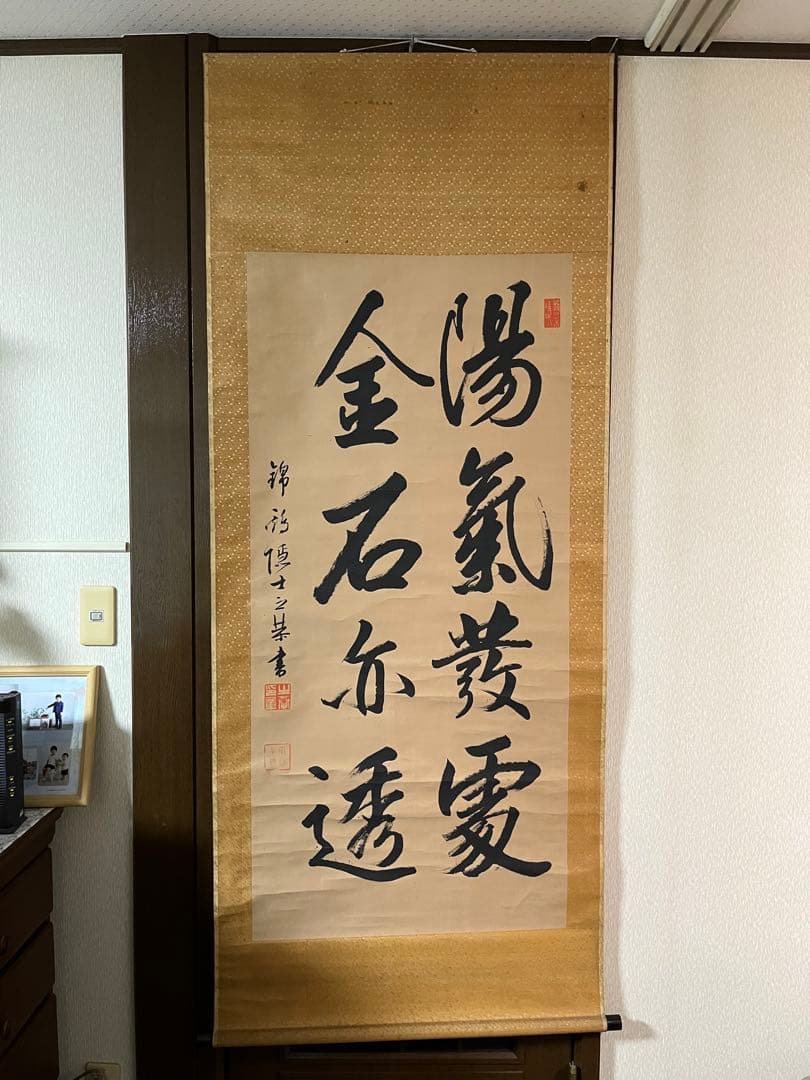 陽氣發處
金石亦透
錦 隱士之榮書